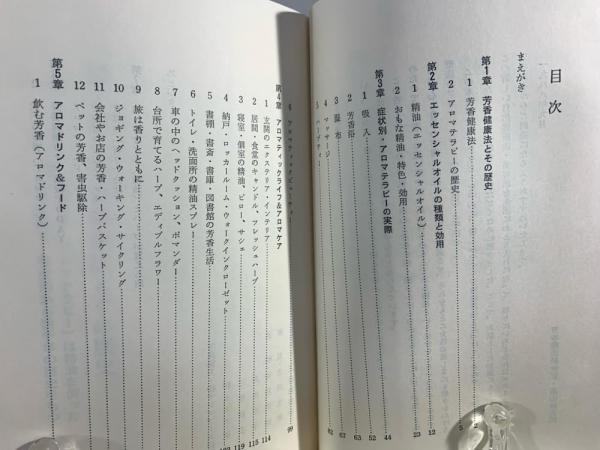 目次
まえがき
第1章 芳香健康法とその歴史
1 芳香健康法
2 アロマテラピーの歴史 5
第2章 エッセンシャルオイルの種類と効用 12
1 精油(エッセンシャルオイル) 12
2 おもな精油・特色・効用 23
第3章 症状別・アロマテラピーの実際 44
1 吸入 52
2 芳香浴 63
3 湿布 67
4 マッサージ 82
5 ハーブティー
第4章 アロマティックライフ&アロマケア 99
1 玄関のエクステリア・インテリア 114
2 居間・食堂のキャンドル、フレッシュハーブ 115
3 寝室・個室の精油、ピロー、サシェ 119
4 納戸・ロッカールーム・ウォークインクローゼット
5 書棚・書斎・書庫・図書館の芳香生活
6 トイレ・洗面所の精油スプレー
7 車の中のヘッドクッション、ポマンダー
8 台所で育てるハーブ、エディブルフラワー
9 旅は香りとともに
10 ジョギング・ウォーキング・サイクリング
11 会社やお店の芳香・ハーブバスケット
12 ペットの芳香、害虫駆除
第5章 アロマドリンク&フード
1 飲む芳香(アロマドリンク)